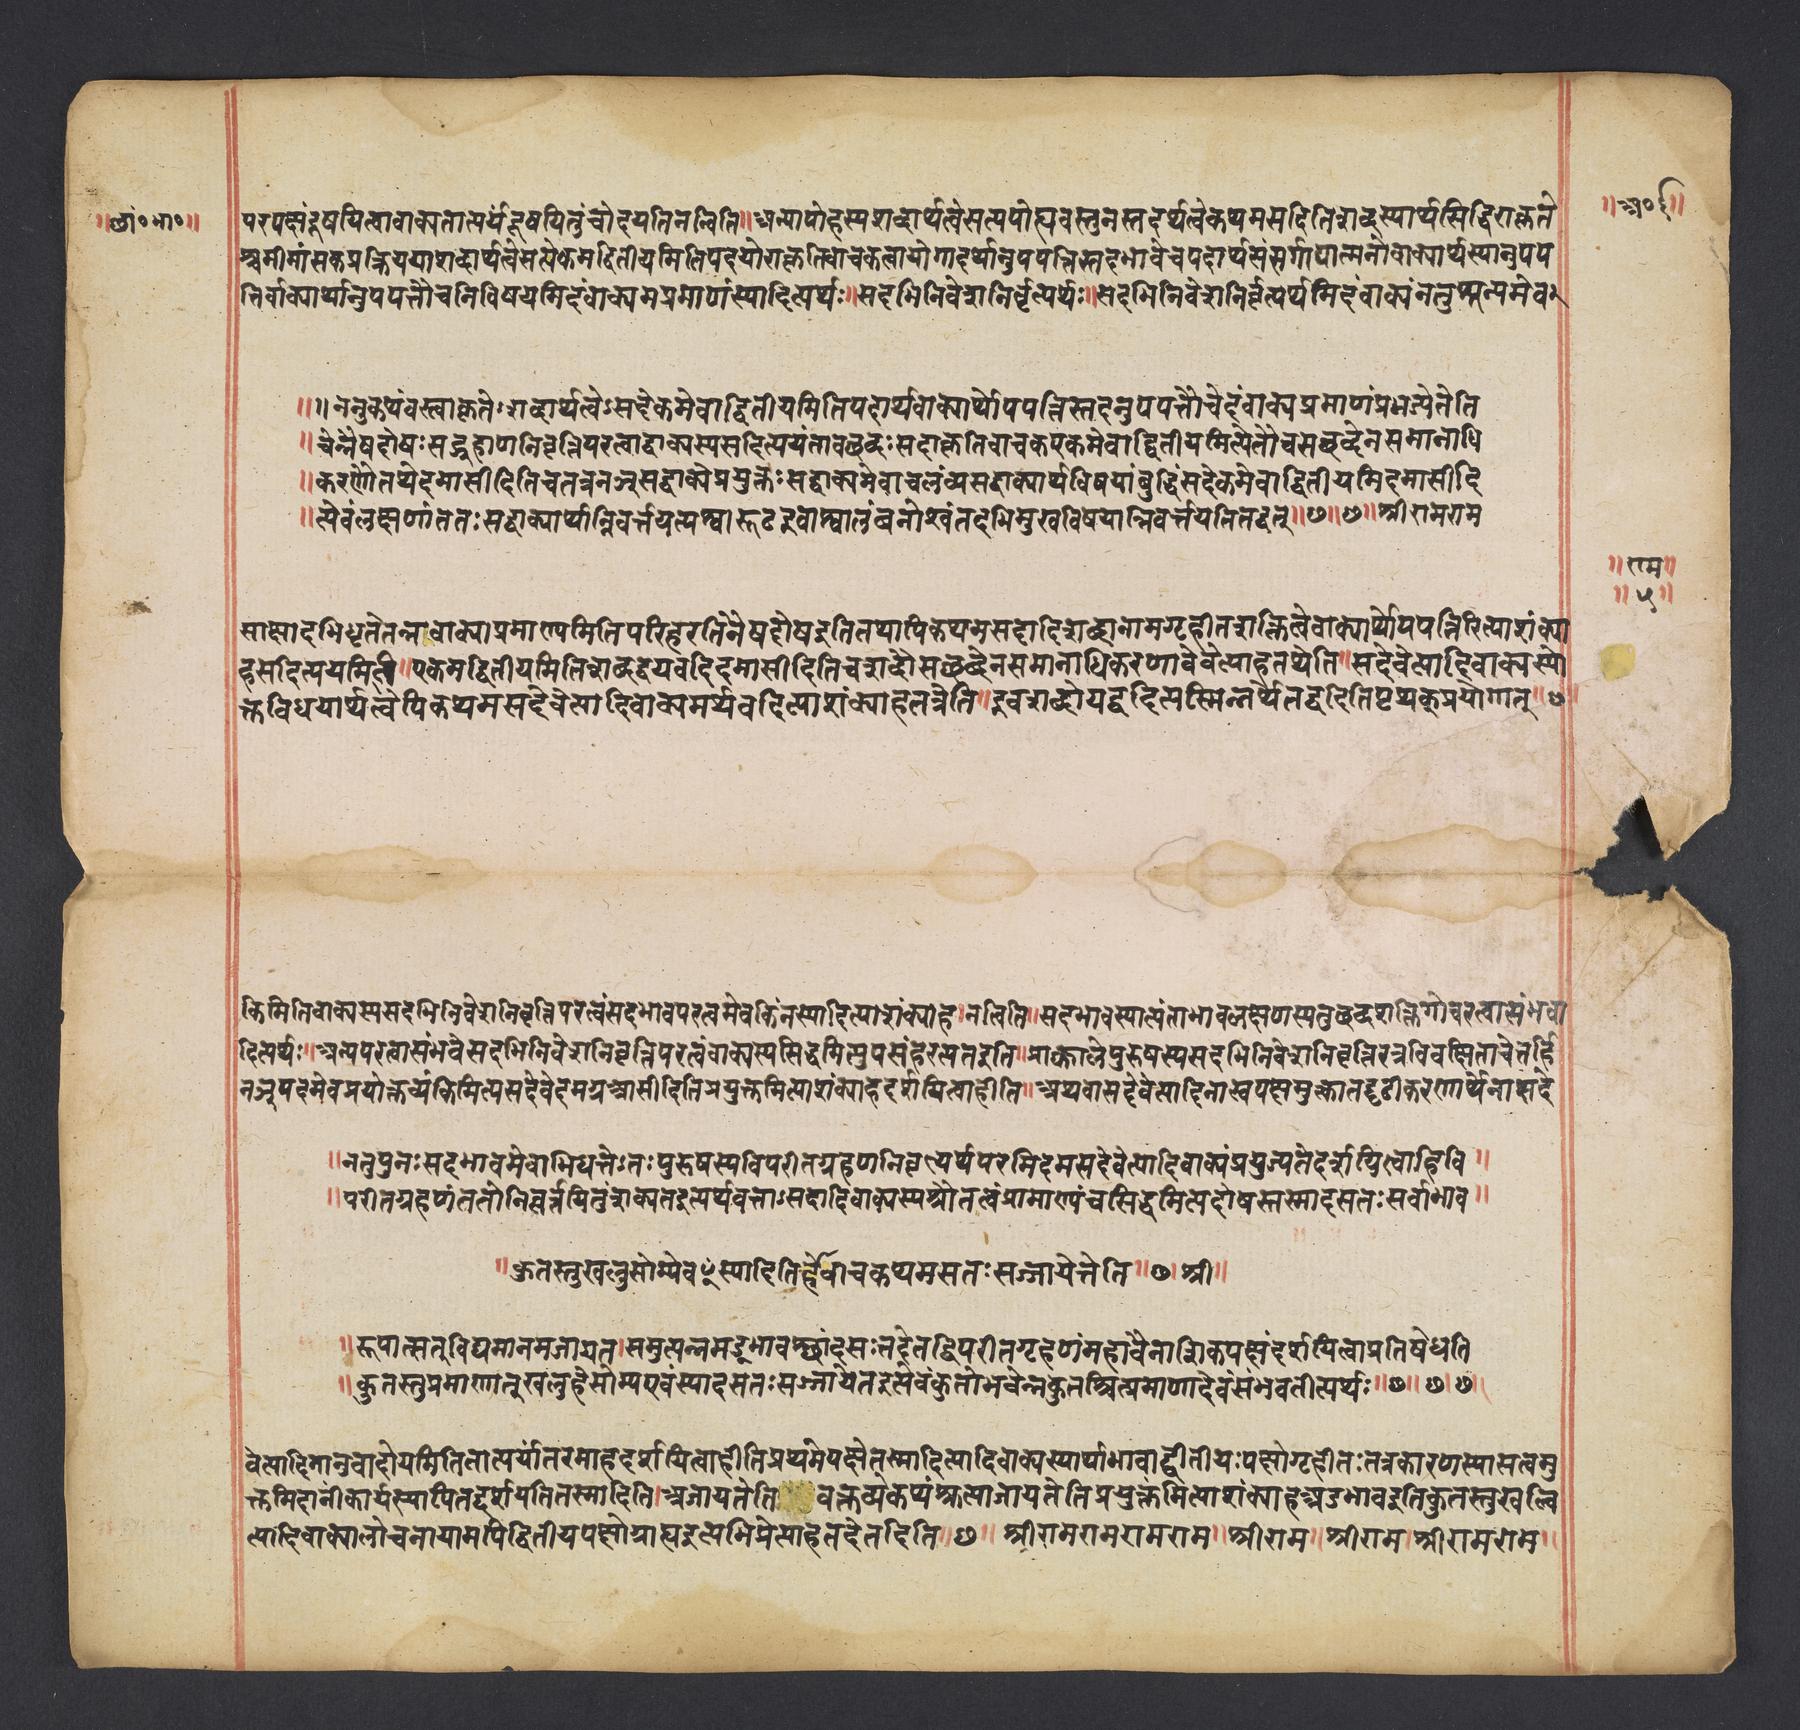 ॥छां॰भा॰॥
॥अ॰६॥
परपक्षंदूषयित्वावाक्यतात्पर्यंदूषयितुंचोदयतिनन्विति॥अन्यापोहस्यशब्दार्थत्वेसत्यपोह्यवस्तुनस्तदर्थत्वेकथमसदितिशब्दस्यार्थसिद्धिराकृते
श्चमीमांसकप्रक्रिययाशब्दार्थत्वेसत्येकमद्वितीयमितिपदयोराकृतिवाचकत्वायोगादर्थानुपपत्तिस्तदभावेचपदार्थसंसर्गाद्यात्मनोवाक्यार्थस्यानुपप
त्तिर्वाक्यार्थानुपपत्तौचनिर्विषयमिदंवाक्यमप्रमाणंस्यादित्यर्थः॥सदभिनिवेशनिर्वृत्यर्थः॥सदभिनिवेशनिर्वृत्यर्थमिदंवाक्यंनतुशून्यमेव
॥॥ननुकथंवस्त्वाकृतेःशब्दार्थत्वेऽसदेकमेवाद्वितीयमितिपदार्थवाक्यार्थोपपत्तिस्तदनुपपत्तौचेदंवाक्यप्रमाणंप्रभज्येतेति
॥चेन्नैषदोषःसद्ग्रहणनिवृत्तिपरत्वाद्वाक्यस्यसदित्ययंतावच्छब्दःसदाकृतिवाचकएकमेवाद्वितीयमित्येतौचसच्छब्देनसमानाधि
॥करणौतथेदमासीदितिचतत्रनञ्सद्वाक्येप्रयुक्तःसद्वाक्यमेवाचलंव्यसद्वाक्यार्थविषयांबुद्धिंसदेकमेवाद्वितीयमिदमासीदि
॥त्येवंलक्षणांततःसद्वाक्यार्थान्निवर्त्तयत्यश्वारूढइवाश्वालंबनोश्वंतदभिमुखविषयान्निवर्त्तयतितद्वत्॥छ॥छ॥श्रीरामराम
॥राम॥
॥५॥
साक्षादभिधृतेतन्नावाक्याप्रमाण्यमितिपरिहरतिनैषदोषइतितथापिकथमसदादिशब्दानामगृहीतशक्तित्वेवाक्यार्थोपपत्तिरित्याशंक्या
हसदित्ययमिति॥एकमद्वितीयमितिशब्दद्वयवदिदमासीदितिचशब्दौसच्छब्देनसमानाधिकरणावेवेत्याहतथेति॥सदेवेत्यादिवाक्यस्यो
क्तविधयार्थत्वेपिकथमसदेवेत्यादिवाक्यमर्थवदित्याशंक्याहतत्रेति॥इवशब्दोयद्वदित्यस्मिन्नर्थेतद्वदितिपृथक्प्रयोगात्॥छ॥
किमितिवाक्यस्यसदभिनिवेशनिवृत्तिपरत्वंसदभावपरत्वमेवकिंनस्यादित्याशंक्याह॥नत्विति॥सदभावस्यात्यंताभावलक्षणस्यतुच्छब्दशक्तिगोचरत्वासंभवा
दित्यर्थः॥अन्यपरत्वासंभवेसदभिनिवेशनिवृत्तिपरत्वंवाक्यस्यसिद्धमित्युपसंहरत्यतइति॥प्राक्कालेपुरुषस्यसदभिनिवेशनिवृत्तिरत्रविवक्षिताचेत्तर्हि
नञ्पदमेवप्रयोक्तव्यंकिमित्यसदेवेदमग्रआसीदितिप्रयुक्तमित्याशंक्याहदर्शयित्वाहीति॥अथवासदेवेत्यादिनास्वपक्षमुक्त्वातद्दृढीकरणार्थेनासदे
॥नतुपुनःसदभावमेवाभिधत्तेऽतःपुरुषस्यविपरीतग्रहणनिवृत्त्यर्थपरमिदमसदेवेत्यादिवाक्यंप्रयुज्यतेदर्शयित्वाहिवि॥
॥परीतग्रहणंततोनिवर्त्तयितुंशक्यतइत्यर्थवत्त्वाऽसदादिवाक्यस्यश्रौतत्वंप्रामाण्यंचसिद्धमित्यदोषस्तस्मादसतःसर्वाभाव॥
॥कुतस्तुखलुसोम्येवꣳस्यादितिहोवाचकथमसतःसज्जायेतेति॥छ॥श्री॥
॥रूपात्सत्विद्यमानमजायत॥समुत्पन्नमडभावश्छांदसःतदेतद्विपरीतगृहणंमहावैनाशिकपक्षंदर्शयित्वाप्रतिषेधति
॥कुतस्तुप्रमाणात्खलुहेसोम्यएवंस्यादसतःसज्जायेतइत्येवंकुतोभवेन्नकुतश्चित्प्रमाणादेवंसंभवतीत्यर्थः॥छ॥छ॥छ॥
वेत्यादितानुवादोयमितितात्पर्यांतरमाहदर्शयित्वाहीतिप्रथमेपक्षेतस्मादित्यादिवाक्यस्यार्थाभावाद्द्वितीयःपक्षोगृहीतःतत्रकारणस्यासत्वमु
क्तमिदानींकार्यस्यापितद्दर्शयतितस्मादिति॥अजायतेतिवक्तव्येकथंजायतेतिप्रयुक्तमित्याशंक्याहअडभावइतिकुतस्तुखल्वि
त्यादिवाक्यालोचनायामपिद्वितीयपक्षोग्राह्यइत्यभिप्रेत्याहतदेतदिति॥छ॥श्रीरामरामरामराम॥श्रीराम॥श्रीराम॥श्रीरामराम॥